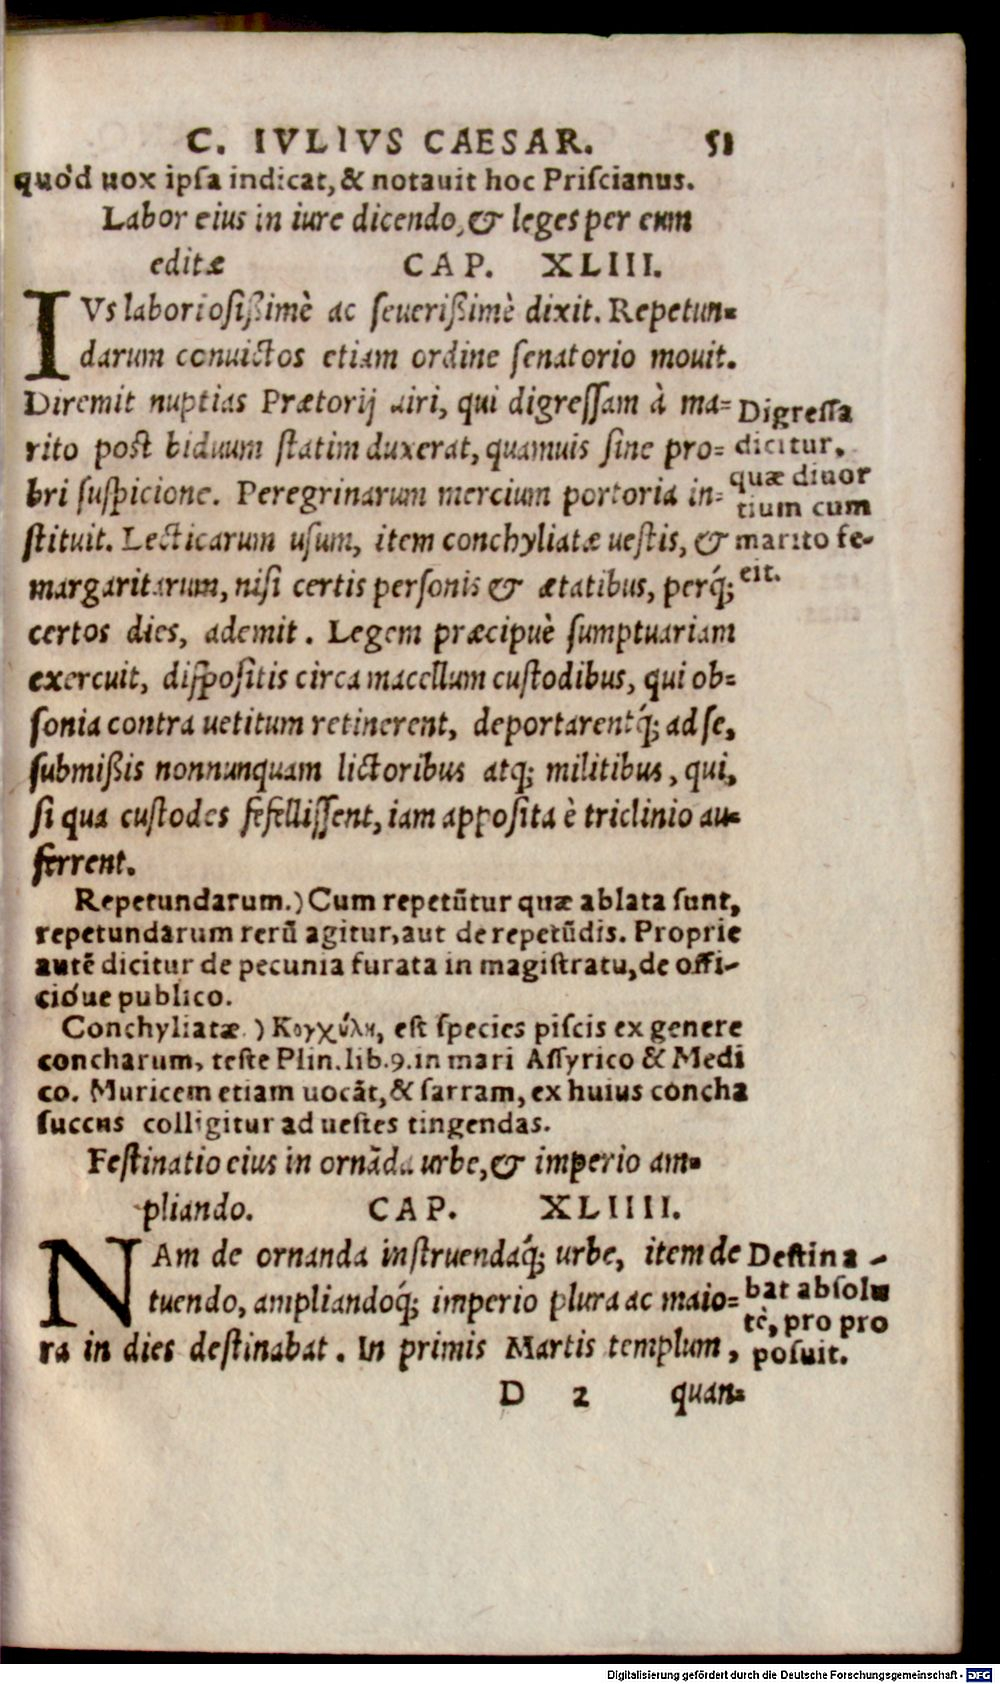 C. IVLIVS CAESAR. 51
quo'd uox ipsa indicat, & notauit hoc Priscianus.
Labor eius in iure dicendo, & leges per eum
editæ CAP. XLIII.
IVs laboriosißimè ac seuerißimè dixit. Repetun=
darum conuictos etiam ordine senatorio mouit.
Diremit nuptias Prætorij uiri, qui digressam à ma=
rito post biduum statim duxerat, quamuis sine pro=
bri suspicione. Peregrinarum mercium portoria in=
stituit. Lecticarum usum, item conchyliatæ uestis, &
margaritarum, nisi certis personis & ætatibus, perq́;
certos dies, ademit. Legem præcipuè sumptuariam
exercuit, dispositis circa macellum custodibus, qui ob=
sonia contra uetitum retinerent, deportarentq́; ad se,
submißis nonnunquam lictoribus atq; militibus, qui,
si qua custodes fefellissent, iam apposita è triclinio au=
ferrent.
Digressa
dicitur,
quæ diuor
tium cum
marito fe-
cit.
Repetundarum.) Cum repetũtur quæ ablata sunt,
repetundarum rerũ agitur, aut de repetũdis. Proprie
autẽ dicitur de pecunia furata in magistratu, de offi-
cióue publico.
Conchyliatæ.) Κογχύλη, est species piscis ex genere
concharum, teste Plin. lib. 9. in mari Assyrico & Medi
co. Muricem etiam uocãt, & sarram, ex huius concha
succus colligitur ad uestes tingendas.
Festinatio eius in ornãda urbe, & imperio am=
pliando. CAP. XLIIII.
NAm de ornanda instruendaq́; urbe, item de
tuendo, ampliandoq́; imperio plura ac maio=
ra in dies destinabat. In primis Martis templum,
Destina-
bat absolu
tè, pro pro
posuit.
D 2 quan=
Digitalisierung gefördert durch die Deutsche Forschungsgemeinschaft - DFG